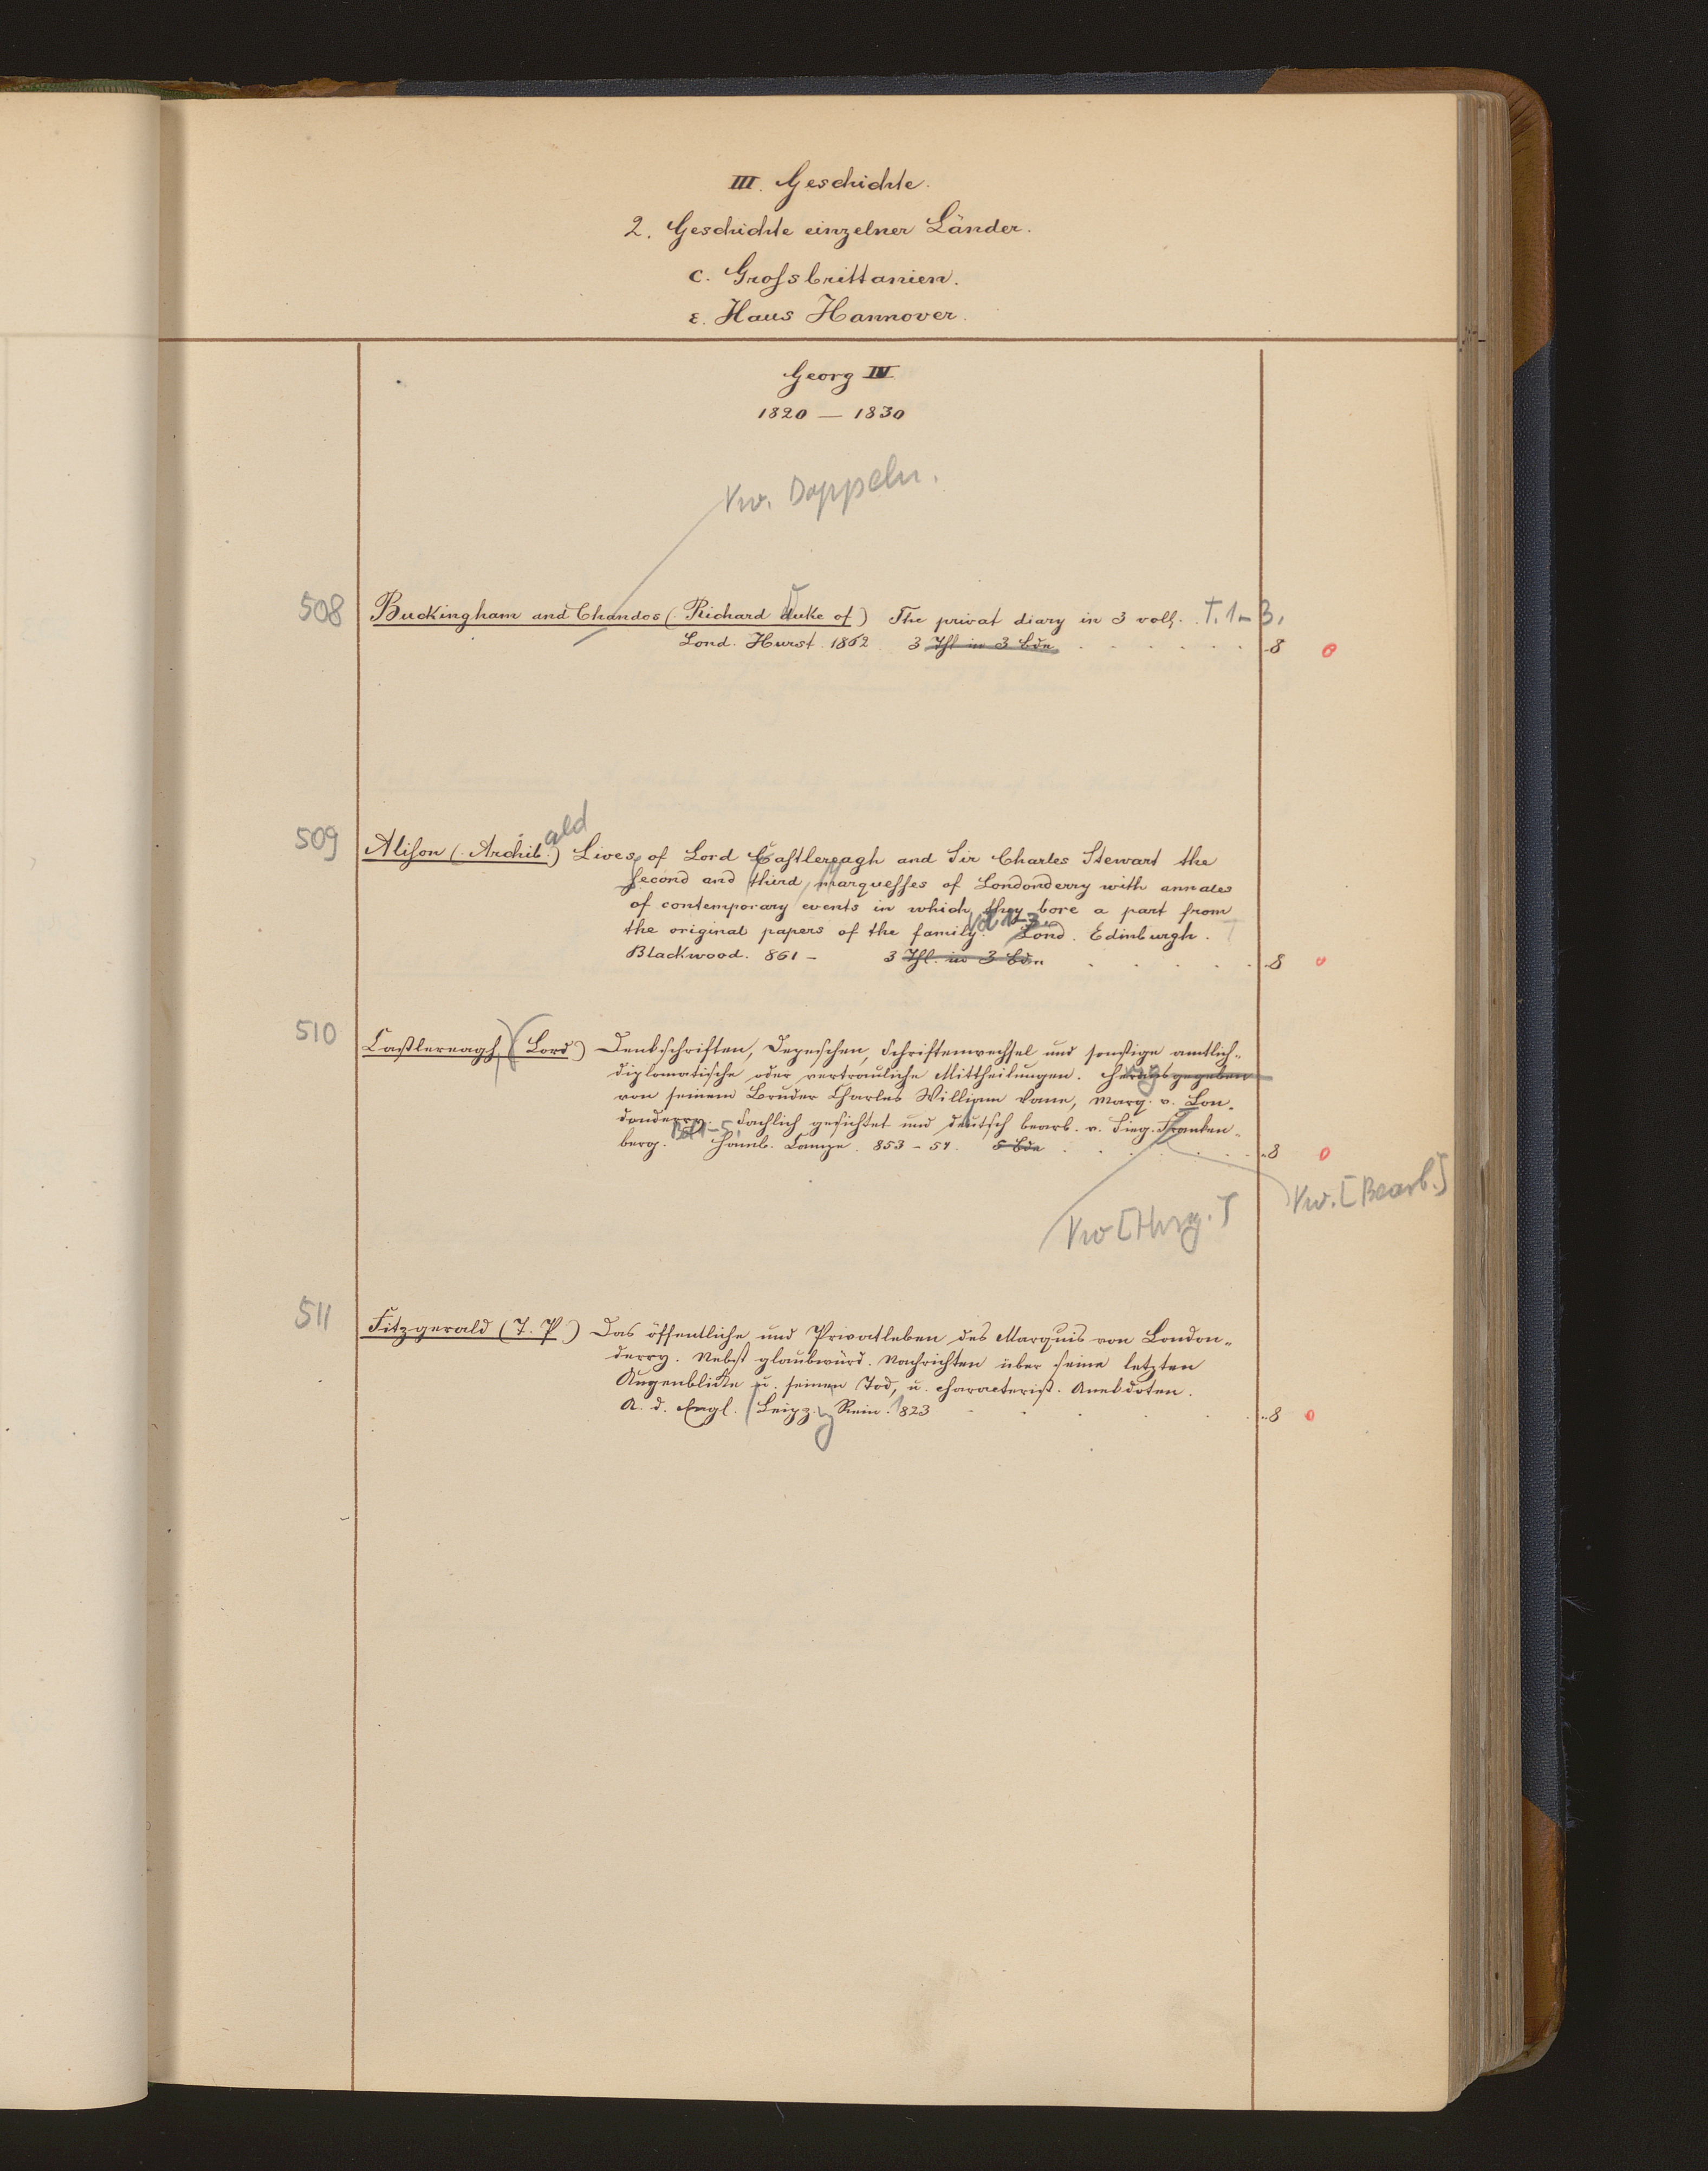 III. Geschichte.
2. Geschichte einzelner Länder.
c. Grossbrittanien.
ε. Haus Hannover.
Georg IV
1820 — 1830
Vw. Doppeln.
508 Buckingham and Chandos (Richard Duke of) The privat diary in 3 voll. T. 1-3.
Lond. Hurst. 1862 3 Thl in 3 Bdn 8 0
509 Alison (Archibald) Lives of Lord Castlereagh and Sir Charles Stewart the
second and third marquesses of Londonderry with annales
of contemporary events in which they bore a part from
the original papers of the family. Vol 1-3. Lond. Edinburgh.
Blackwood. 861 - 3 Thl. in 3 Bdn 8 0
510 Castlereagh (Lord) Denkschriften, Depeschen, Schriftenwechsel und sonstige amtlich-
diplomatische oder vertrauliche Mittheilungen. herausgegeben
von seinem Bruder Charles William Vane, Marq. v. Lon-
donderry. Sachlich gesichtet und deutsch bearb. v. Sieg. Franken-
berg. Bd 1-5. Hamb. Campe. 853 - 54. 5 Bde 8 0
Vw. [Bearb.]
Vw [Hrsg.]
511 Fitzgerald (T. P.) Das öffentliche und Privatleben des Marquis von London-
derry. Nebst glaubwürd. Nachrichten über seine letzten
Augenblicke u. seinen Tod, u. characterist. Anekdoten.
A. d. Engl. Leipzig Rein. 1823 8 0